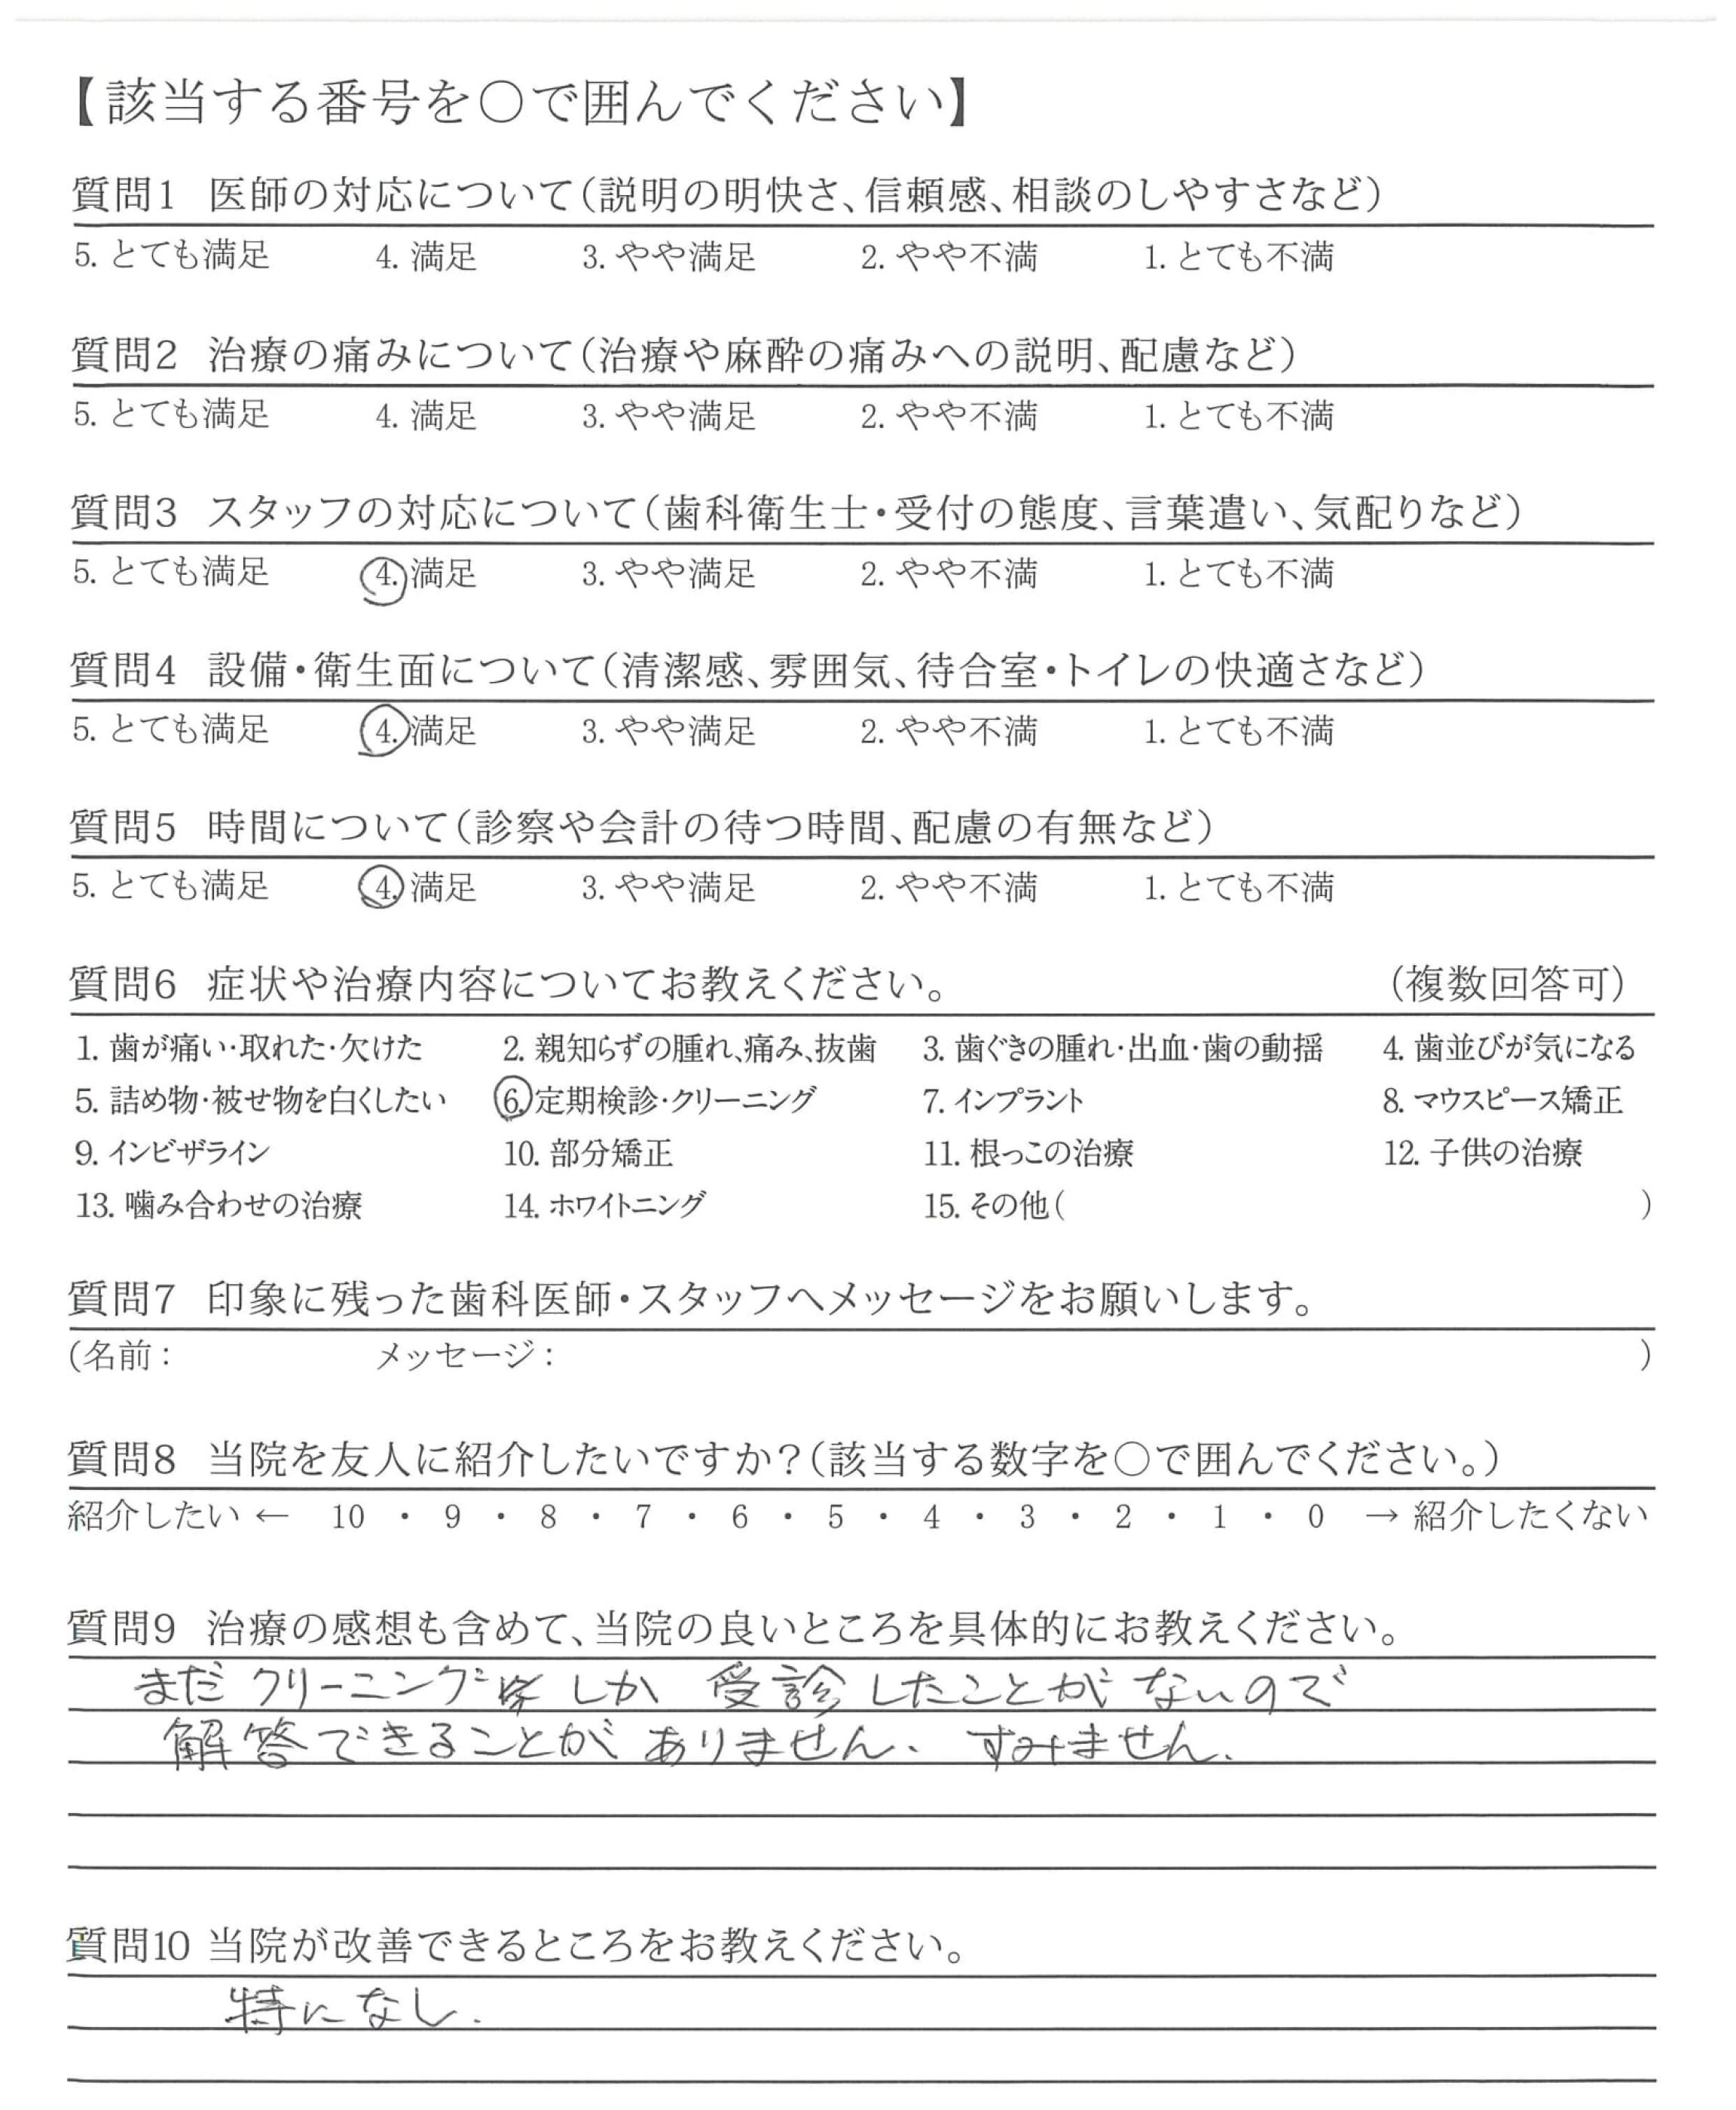 【該当する番号を○で囲んでください】
質問1 医師の対応について(説明の明快さ、信頼感、相談のしやすさなど)
5. とても満足 4. 満足 3. やや満足 2. やや不満 1. とても不満
質問2 治療の痛みについて(治療や麻酔の痛みへの説明、配慮など)
5. とても満足 4. 満足 3. やや満足 2. やや不満 1. とても不満
質問3 スタッフの対応について(歯科衛生士・受付の態度、言葉遣い、気配りなど)
5. とても満足 4. 満足 3. やや満足 2. やや不満 1. とても不満
質問4 設備・衛生面について(清潔感、雰囲気、待合室・トイレの快適さなど)
5. とても満足 4. 満足 3. やや満足 2. やや不満 1. とても不満
質問5 時間について(診察や会計の待つ時間、配慮の有無など)
5. とても満足 4. 満足 3. やや満足 2. やや不満 1. とても不満
質問6 症状や治療内容についてお教えください。 (複数回答可)
1. 歯が痛い・取れた・欠けた 2. 親知らずの腫れ、痛み、抜歯 3. 歯ぐきの腫れ・出血・歯の動揺 4. 歯並びが気になる
5. 詰め物・被せ物を白くしたい 6. 定期検診・クリーニング 7. インプラント 8. マウスピース矯正
9. インビザライン 10. 部分矯正 11. 根っこの治療 12. 子供の治療
13. 噛み合わせの治療 14. ホワイトニング 15. その他( )
質問7 印象に残った歯科医師・スタッフへメッセージをお願いします。
(名前: メッセージ: )
質問8 当院を友人に紹介したいですか?(該当する数字を○で囲んでください。)
紹介したい ← 10 ・ 9 ・ 8 ・ 7 ・ 6 ・ 5 ・ 4 ・ 3 ・ 2 ・ 1 ・ 0 → 紹介したくない
質問9 治療の感想も含めて、当院の良いところを具体的にお教えください。
まだ クリーニング しか 受診したことがないので
解答できることが ありません。 すみません。
質問10 当院が改善できるところをお教えください。
特になし.